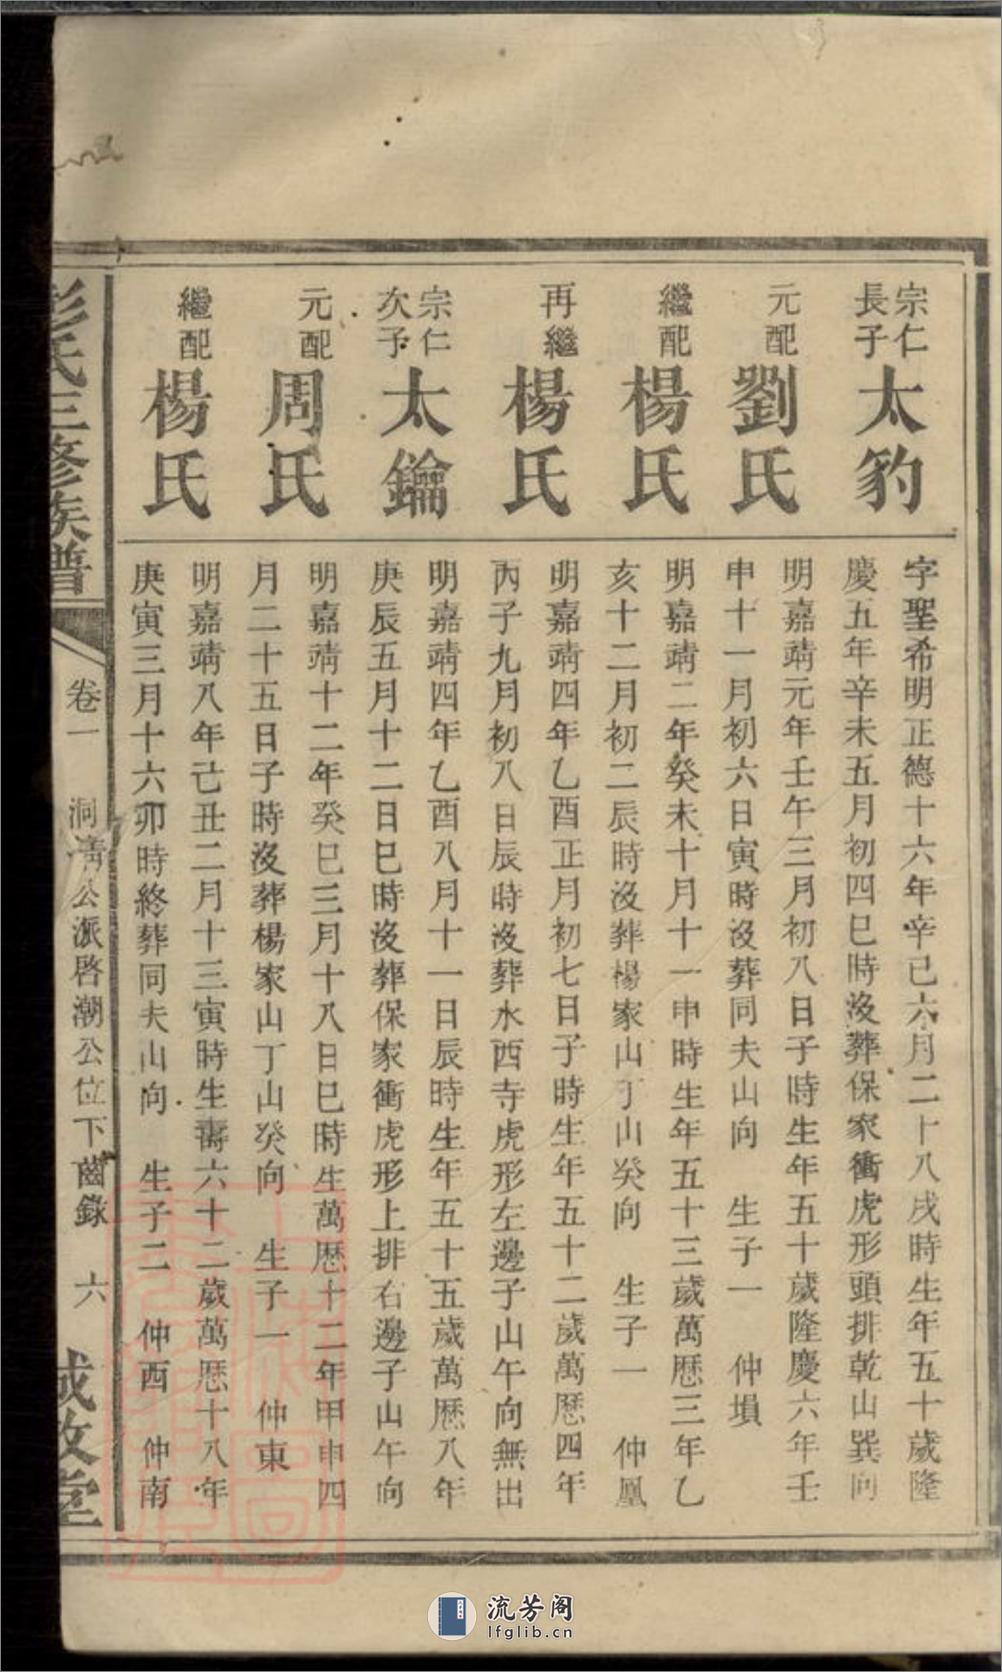 宗仁長子太豹
字聖希明正德十六年辛己六月二十八戌時生年五十歲隆
慶五年辛未五月初四巳時沒葬保家衝虎形頭排乾山巽向
元配劉氏
明嘉靖元年壬午三月初八日子時生年五十歲隆慶六年壬
申十一月初六日寅時沒葬同夫山向 生子一 仲塤
繼配楊氏
明嘉靖二年癸未十月十一申時生年五十三歲萬歷三年乙
亥十二月初二辰時沒葬楊家山丁山癸向 生子一 仲凰
再繼楊氏
明嘉靖四年乙酉正月初七日子時生年五十二歲萬歷四年
丙子九月初八日辰時沒葬水西寺虎形左邊子山午向無出
宗仁次子太鑰
明嘉靖四年乙酉八月十一日辰時生年五十五歲萬歷八年
庚辰五月十二日巳時沒葬保家衝虎形上排右邊子山午向
元配周氏
明嘉靖十二年癸巳三月十八日巳時生萬歷十二年甲申四
月二十五日子時沒葬楊家山丁山癸向 生子一 仲東
繼配楊氏
明嘉靖八年己丑二月十三寅時生壽六十二歲萬歷十八年
庚寅三月十六卯時終葬同夫山向 生子二 仲西 仲南
彭氏三修族譜 卷一 洞清公派啓潮公位下齒錄 六
流芳阁
lfglib.cn